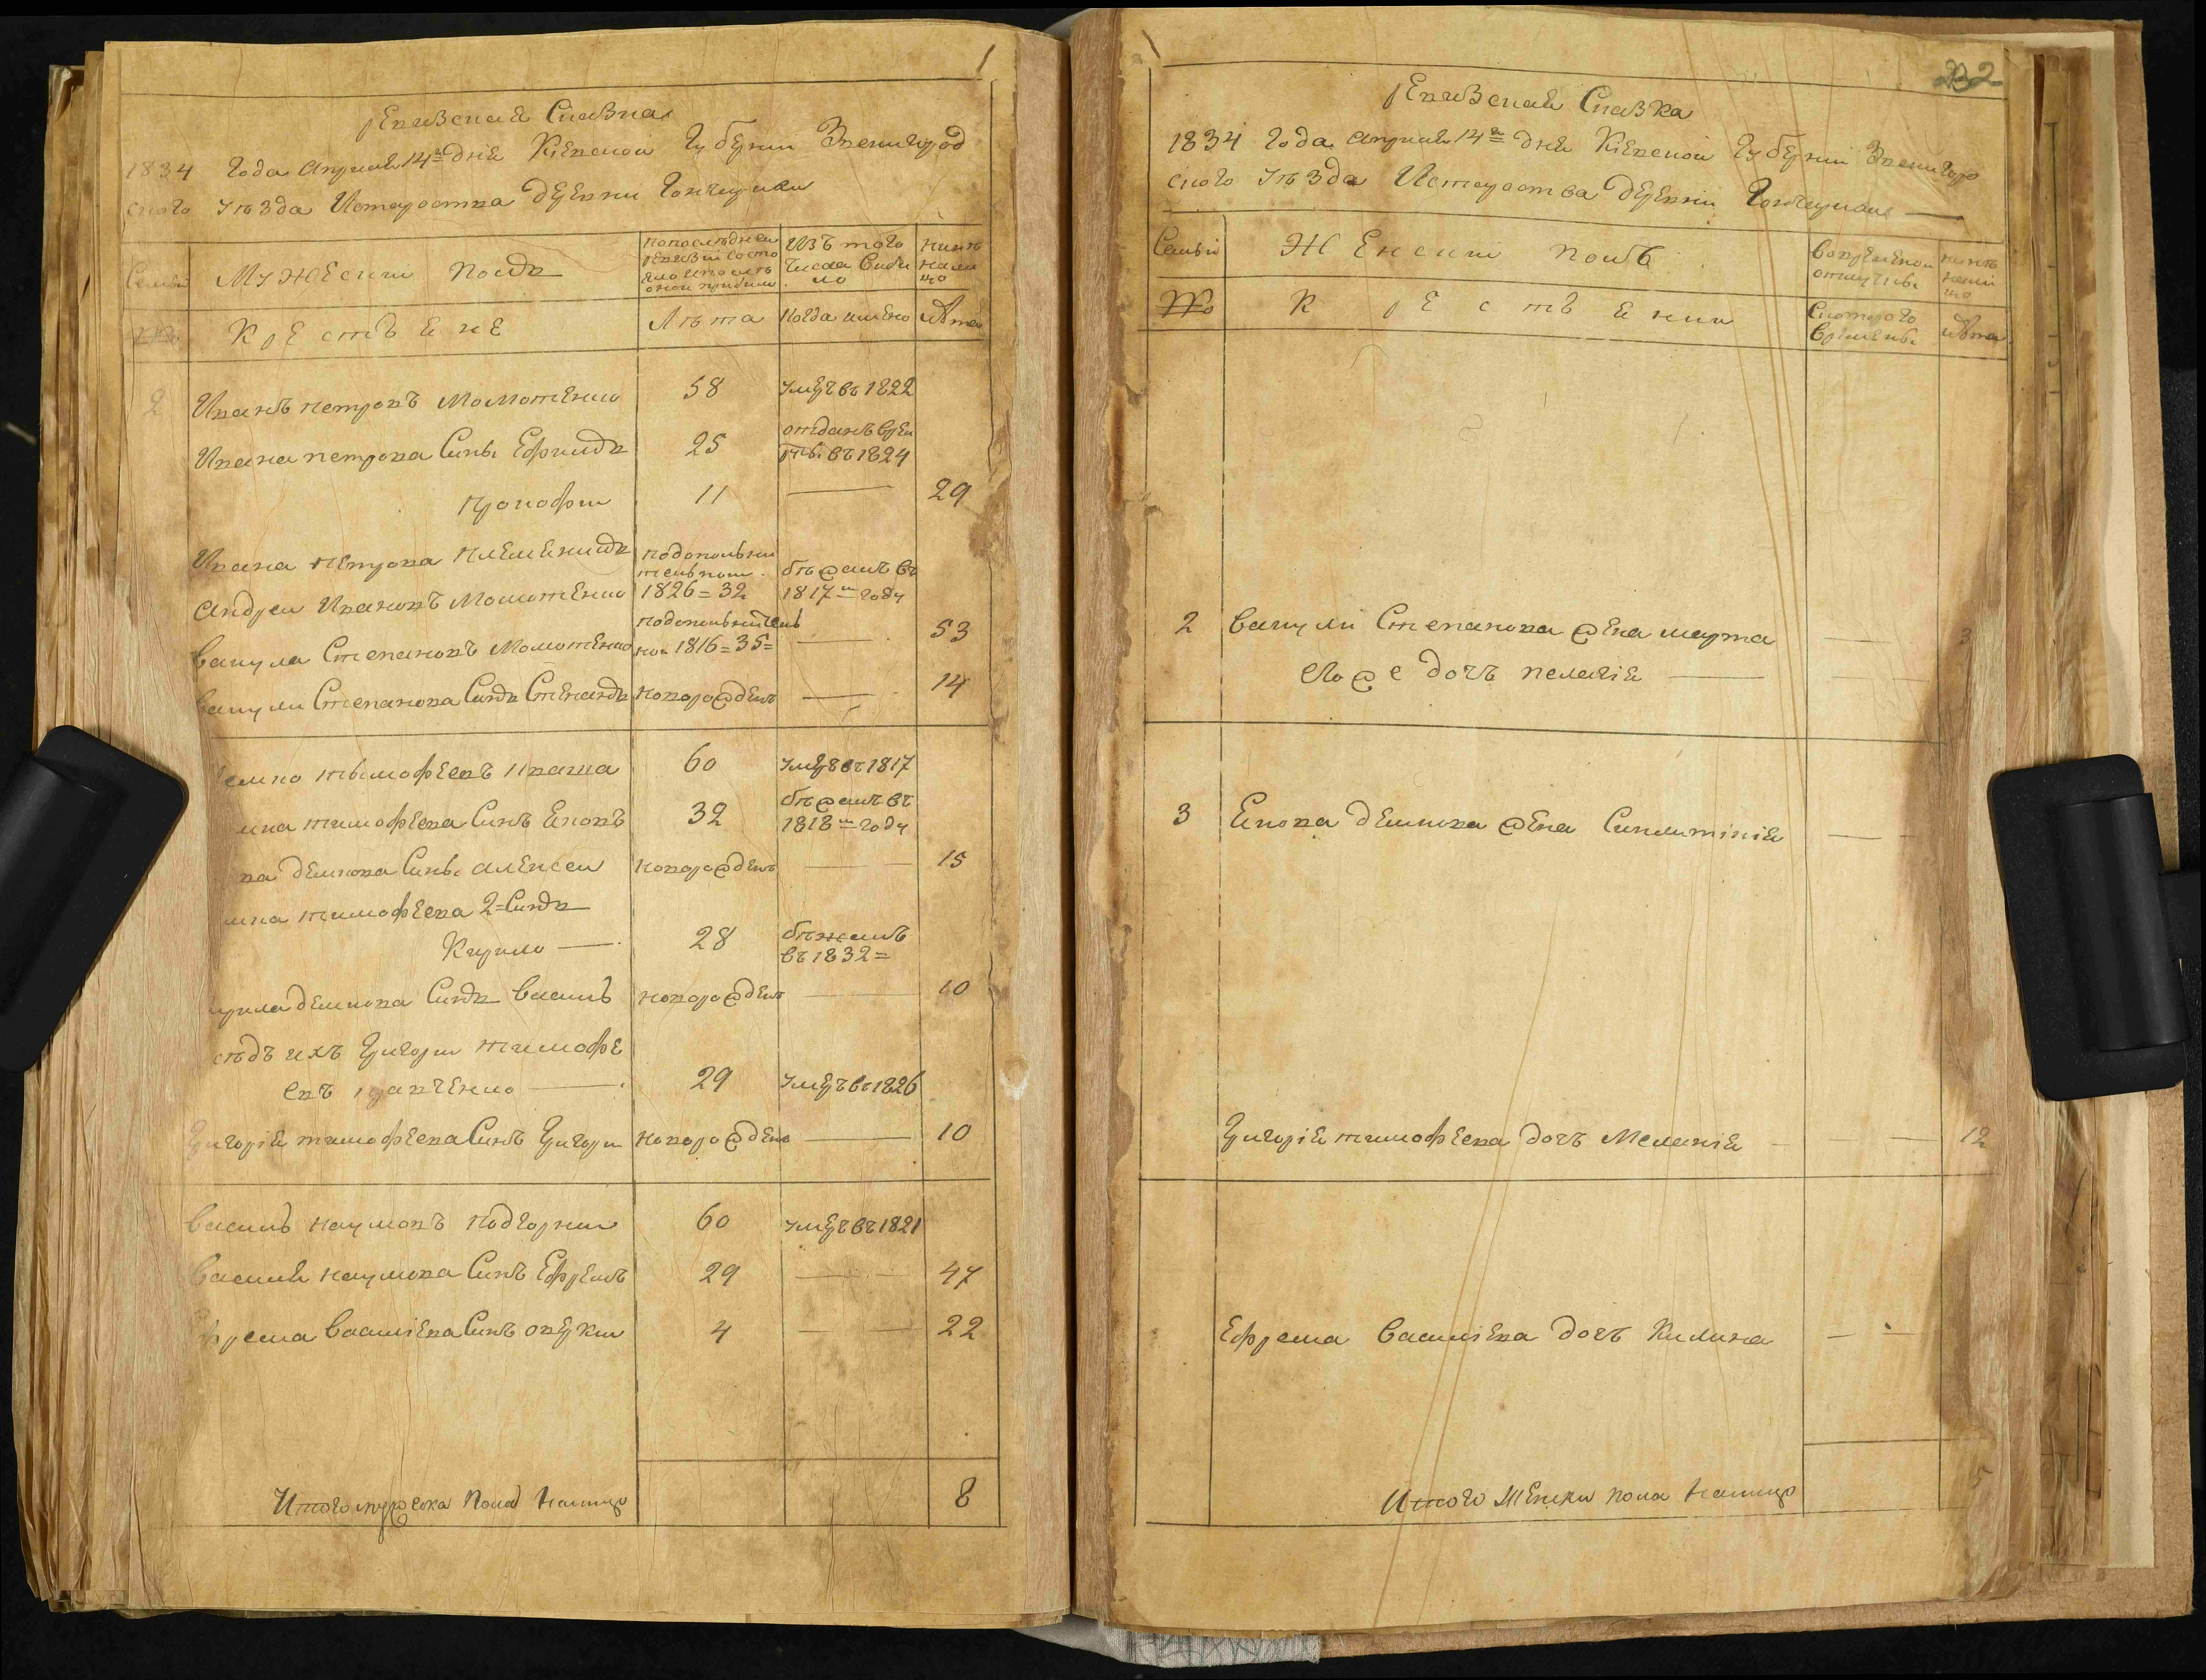 1
Ревизская Сказка
1834 Года Априля 14го дня Кіевской Губерніи Звенигород
ского Уезда Истароства Деревни Гончарихи
Семьи
Мужескій полъ
По последней ревизіи состо
яло и после
оной прибыло
Изъ того
числа Выбы
ло
Ныне
нали
цо
№
Крестьяне
Лета
Когда имено
Лета
2
Иванъ петровъ Момотенко
58
умеръ въ 1822
Ивана петрова Сынъ Ефимъ
25
отданъ врек
рты въ 1824
прокофи
11
29
Ивана петрова племеникъ
Андреи Ивановъ Момотенко
подополни
телнои
1826 = 32
бежалъ въ
1817м году
Вакула Степановъ Момотенко
подополнителъ
нои 1816 = 35 =
53
Вакули Степанова Синъ Степанъ
новорожденъ
14
емко тымофеевъ
60
умеръ въ 1817
мка тимофеева Синъ Яковъ
32
бежалъ въ
1818м году
ва демкова Синъ алексеи
новорожденъ
15
мка тимофеева 2=Синъ
Кирило
28
бежалъ
въ 1832 =
ирила демкова Синъ василь
новорожденъ
10
седъ ихъ Григори тимофе
евъ кравченко
29
умеръ въ 1826
Григорія тимофеева Синъ Григори
новорожденъ
10
василь наумовъ подгорни
60
умеръ въ 1821
василя наумова Синъ Ефремъ
29
47
Ефрема василіева Синъ оверкии
4
22
Итого мужеска пола налицо
8
232
Ревизская Сказка
1834 года априля 14го дня Кіевской Губерніи Звенигоро
ского Уезда Истароства Деревни Гончарихи
Семьи
Женскій полъ
Во временой
отлучкы
ныне
нали
цо
№
Крестьянки
С которого
времены
Лета
2
Вакули Степанова жена марта
3
его же дочъ пелагія
3
Якова демкова жена Синклитікія
Григорія тимофеева дочъ Меланія
12
Ефрема Василіева дочъ Килина
Итого женски пола налицо
5